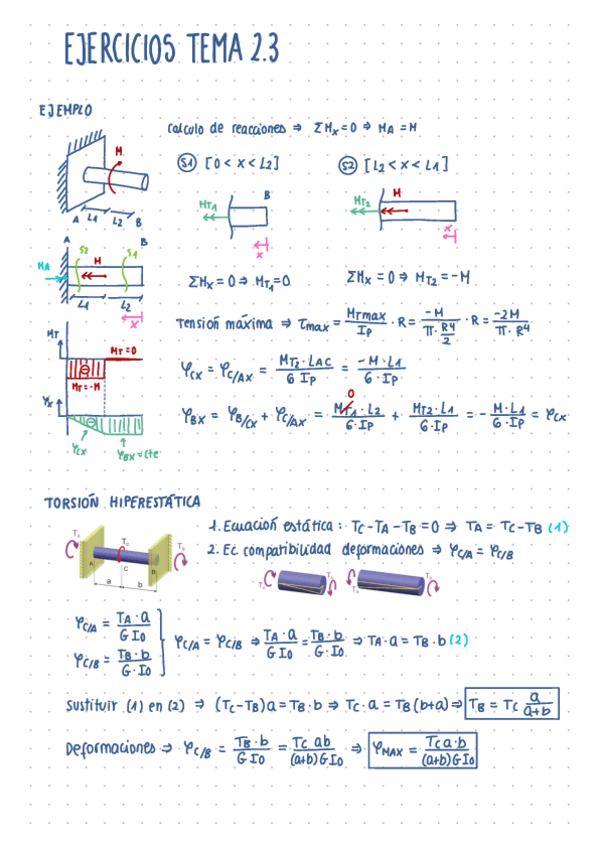 EJERCICIOS TEMA 2.3
EJEMPLO
calculo de reacciones ⇒ ΣMx=0 ⇒ MA = M
S1 [0 < x < L2]
S2 [L2 < x < L1]
M
A L1 L2 B
MT1 B
x
MT2 M
x
A B
S2 S1
MA M
L1 L2
x
ΣMx = 0 ⇒ MT1=0
ΣMx = 0 ⇒ MT2 = -M
Tensión máxima ⇒ τmax = MTmax/Ip · R = -M/(π · R4/2) · R = -2M/(π · R4)
MT
MT=0
MT=-M
φCX = φC/AX = MT2 · LAC/(G Ip) = -M · L1/(G · Ip)
φx
φCX
φBX = cte
φBX = φB/CX + φC/AX = MT1 · L2/(G · Ip) + MT2 · L1/(G · Ip) = - M · L1/(G · Ip) = φCX
0
TORSIÓN HIPERESTÁTICA
1. Ecuación estática : TC-TA-TB=0 ⇒ TA = TC-TB (1)
2. Ec compatibilidad deformaciones ⇒ φC/A = φC/B
A C B
a b
φC/A = TA · a/(G I0)
φC/B = TB · b/(G · I0)
φC/A = φC/B ⇒ TA · a/(G I0) = TB · b/(G · I0) ⇒ TA · a = TB · b (2)
Sustituir (1) en (2) ⇒ (TC-TB)a = TB · b ⇒ TC · a = TB(b+a) ⇒ TB = TC a/(a+b)
Deformaciones ⇒ φC/B = TB · b/(G I0) = TC ab/((a+b)G I0) ⇒ φMAX = TC a · b/((a+b)G I0)